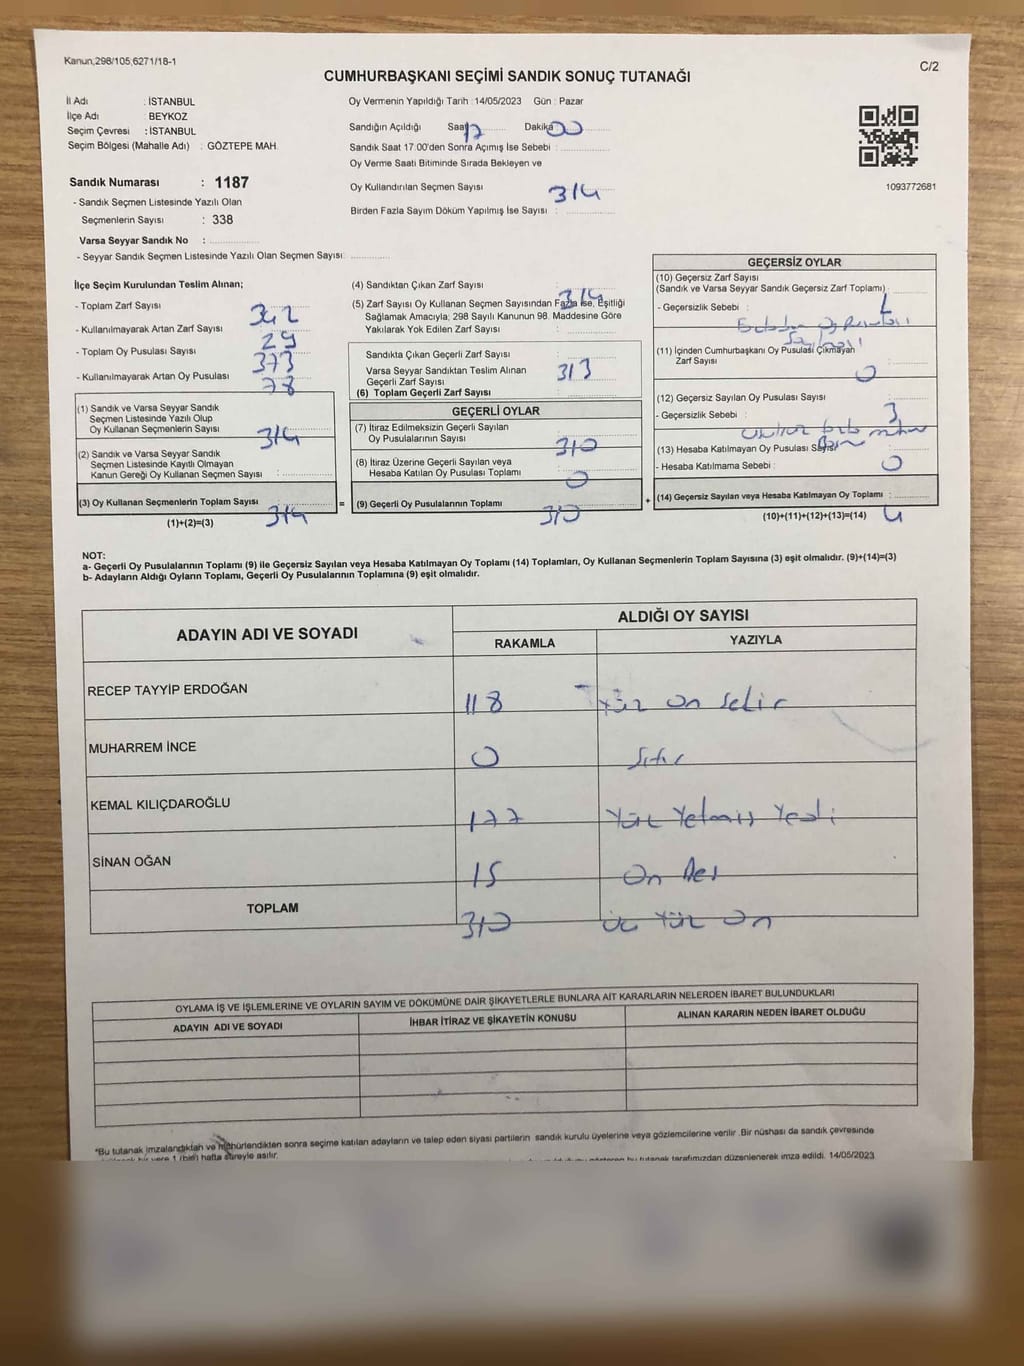 Kanun,298/105,6271/18-1
C/2
CUMHURBAŞKANI SEÇİMİ SANDIK SONUÇ TUTANAĞI
İl Adı : İSTANBUL
İlçe Adı : BEYKOZ
Seçim Çevresi : İSTANBUL
Seçim Bölgesi (Mahalle Adı) : GÖZTEPE MAH.
Sandık Numarası : 1187
- Sandık Seçmen Listesinde Yazılı Olan
Seçmenlerin Sayısı : 338
Varsa Seyyar Sandık No :
- Seyyar Sandık Seçmen Listesinde Yazılı Olan Seçmen Sayısı:
Oy Vermenin Yapıldığı Tarih : 14/05/2023 Gün : Pazar
Sandığın Açıldığı Saat 17 Dakika 00
Sandık Saat 17:00'den Sonra Açımış İse Sebebi :
Oy Verme Saati Bitiminde Sırada Bekleyen ve
Oy Kullandırılan Seçmen Sayısı 314
Birden Fazla Sayım Döküm Yapılmış İse Sayısı :
1093772681
İlçe Seçim Kurulundan Teslim Alınan;
- Toplam Zarf Sayısı : 342
- Kullanılmayarak Artan Zarf Sayısı : 29
- Toplam Oy Pusulası Sayısı : 373
- Kullanılmayarak Artan Oy Pusulası : 78
(1) Sandık ve Varsa Seyyar Sandık
Seçmen Listesinde Yazılı Olup
Oy Kullanan Seçmenlerin Sayısı : 314
(2) Sandık ve Varsa Seyyar Sandık
Seçmen Listesinde Kayıtlı Olmayan
Kanun Gereği Oy Kullanan Seçmen Sayısı :
(3) Oy Kullanan Seçmenlerin Toplam Sayısı : 314
(1)+(2)=(3)
=
(4) Sandıktan Çıkan Zarf Sayısı : 314
(5) Zarf Sayısı Oy Kullanan Seçmen Sayısından Fazla ise, Eşitliği
Sağlamak Amacıyla; 298 Sayılı Kanunun 98. Maddesine Göre
Yakılarak Yok Edilen Zarf Sayısı :
Sandıkta Çıkan Geçerli Zarf Sayısı :
Varsa Seyyar Sandıktan Teslim Alınan
Geçerli Zarf Sayısı : 313
(6) Toplam Geçerli Zarf Sayısı :
GEÇERLİ OYLAR
(7) İtiraz Edilmeksizin Geçerli Sayılan
Oy Pusulalarının Sayısı : 310
(8) İtiraz Üzerine Geçerli Sayılan veya
Hesaba Katılan Oy Pusulası Toplamı : 0
(9) Geçerli Oy Pusulalarının Toplamı : 310
+
GEÇERSİZ OYLAR
(10) Geçersiz Zarf Sayısı
(Sandık ve Varsa Seyyar Sandık Geçersiz Zarf Toplamı) :
- Geçersizlik Sebebi :
(11) İçinden Cumhurbaşkanı Oy Pusulası Çıkmayan
Zarf Sayısı : 0
(12) Geçersiz Sayılan Oy Pusulası Sayısı : 3
- Geçersizlik Sebebi :
(13) Hesaba Katılmayan Oy Pusulası Sayısı :
- Hesaba Katılmama Sebebi : 0
(14) Geçersiz Sayılan veya Hesaba Katılmayan Oy Toplamı :
(10)+(11)+(12)+(13)=(14) 4
NOT:
a- Geçerli Oy Pusulalarının Toplamı (9) ile Geçersiz Sayılan veya Hesaba Katılmayan Oy Toplamı (14) Toplamları, Oy Kullanan Seçmenlerin Toplam Sayısına (3) eşit olmalıdır. (9)+(14)=(3)
b- Adayların Aldığı Oyların Toplamı, Geçerli Oy Pusulalarının Toplamına (9) eşit olmalıdır.
ADAYIN ADI VE SOYADI
ALDIĞI OY SAYISI
RAKAMLA YAZIYLA
RECEP TAYYİP ERDOĞAN 118 Yüz on sekiz
MUHARREM İNCE 0 Sıfır
KEMAL KILIÇDAROĞLU 177 Yüz Yetmiş Yedi
SİNAN OĞAN 15 On Beş
TOPLAM 310 Üç Yüz On
OYLAMA İŞ VE İŞLEMLERİNE VE OYLARIN SAYIM VE DÖKÜMÜNE DAİR ŞİKAYETLERLE BUNLARA AİT KARARLARIN NELERDEN İBARET BULUNDUKLARI
ADAYIN ADI VE SOYADI İHBAR İTİRAZ VE ŞİKAYETİN KONUSU ALINAN KARARIN NEDEN İBARET OLDUĞU
*Bu tutanak imzalandıktan ve mühürlendikten sonra seçime katılan adayların ve talep eden siyasi partilerin sandık kurulu üyelerine veya gözlemcilerine verilir .Bir nüshası da sandık çevresinde
bir yere 1 (bir) hafta süreyle asılır.
tutanak tarafımızdan düzenlenerek imza edildi. 14/05/2023